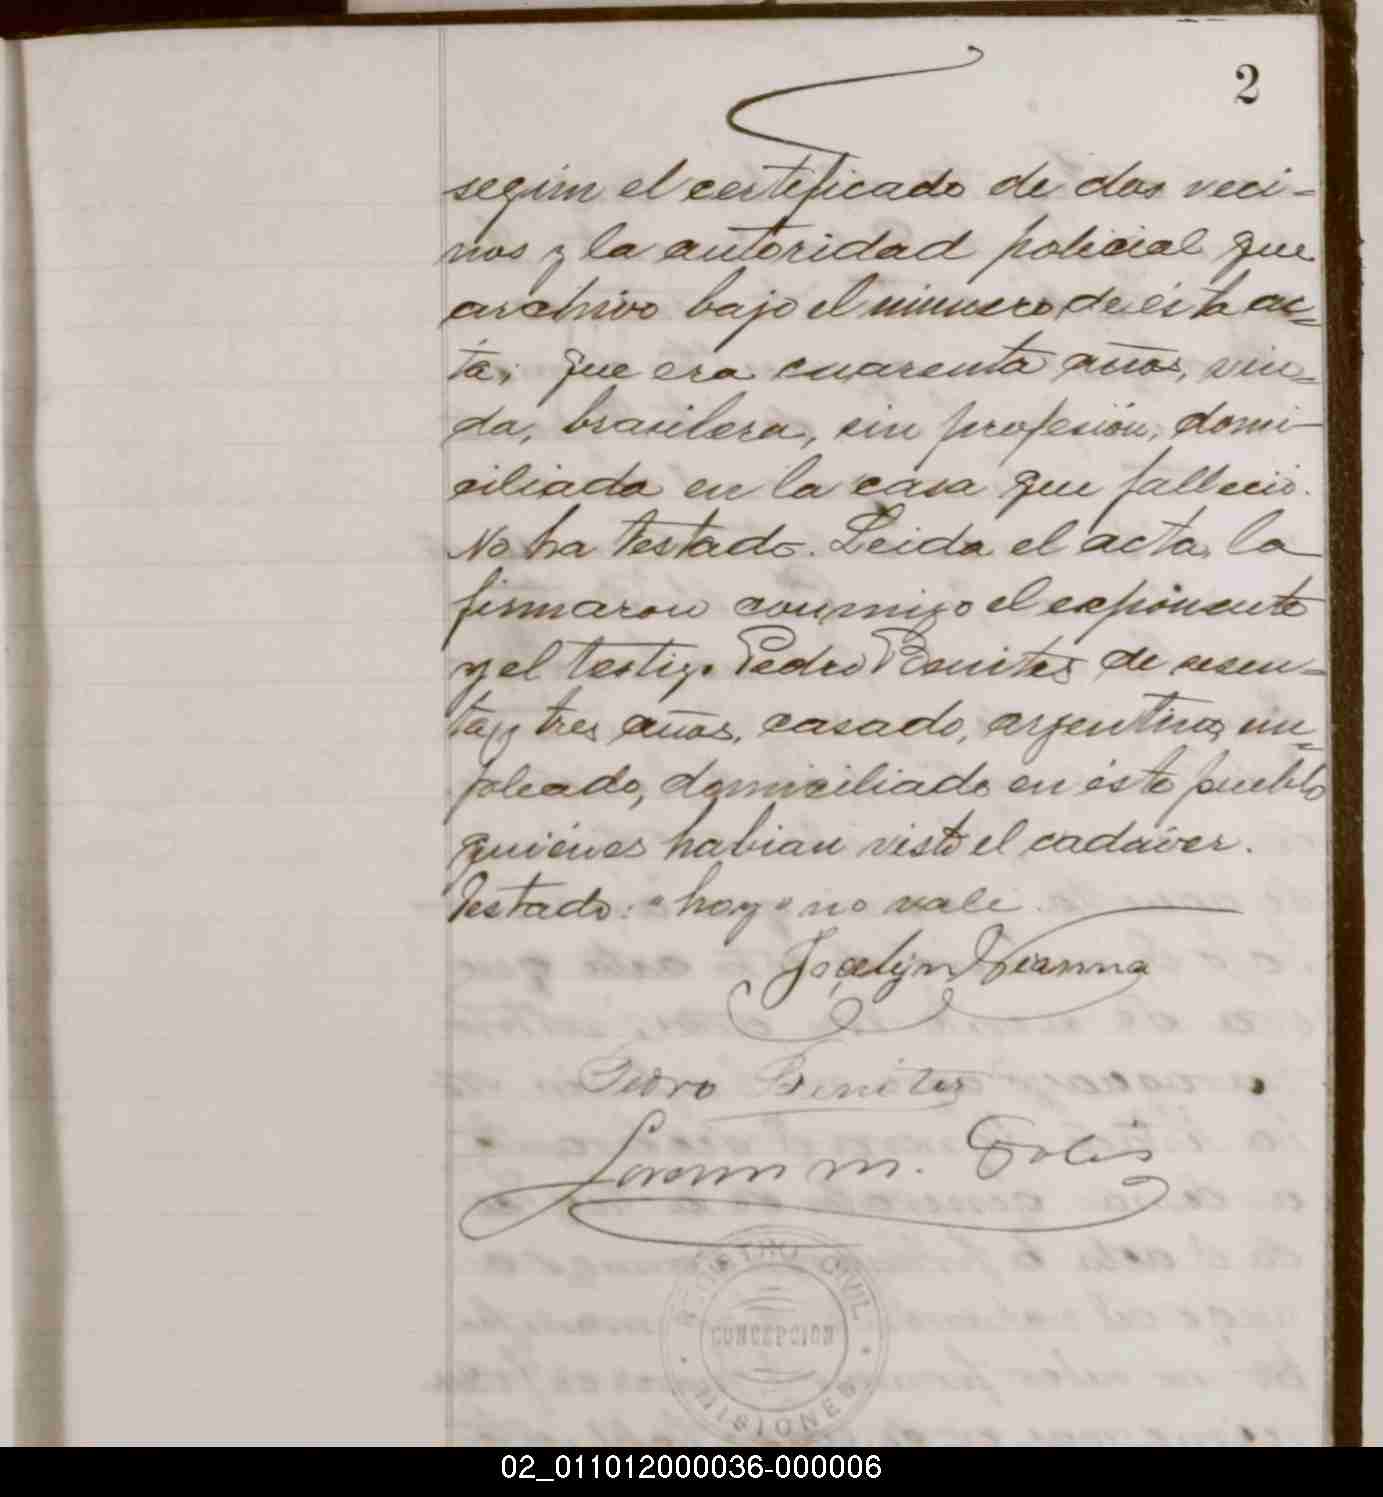 2
según el certificado de dos veci-
nos y la autoridad policial que
archivo bajo el número de ésta ac-
ta; que era cuarenta años, viu-
da, brasilera, sin profesión, domi-
ciliada en la casa que falleció.
No ha testado. Leida el acta, la
firmaron conmigo el exponente
y el testigo Pedro Benites de sesen-
ta y tres años, casado, argentino, em-
pleado, domiciliado en éste pueblo
quiénes habian visto el cadáver.
Testado: "hoy" no vale.
Jocelyn Vianna
Pedro Benites
m. Solis
REGISTRO CIVIL
CONCEPCION
MISIONES
02_011012000036-000006